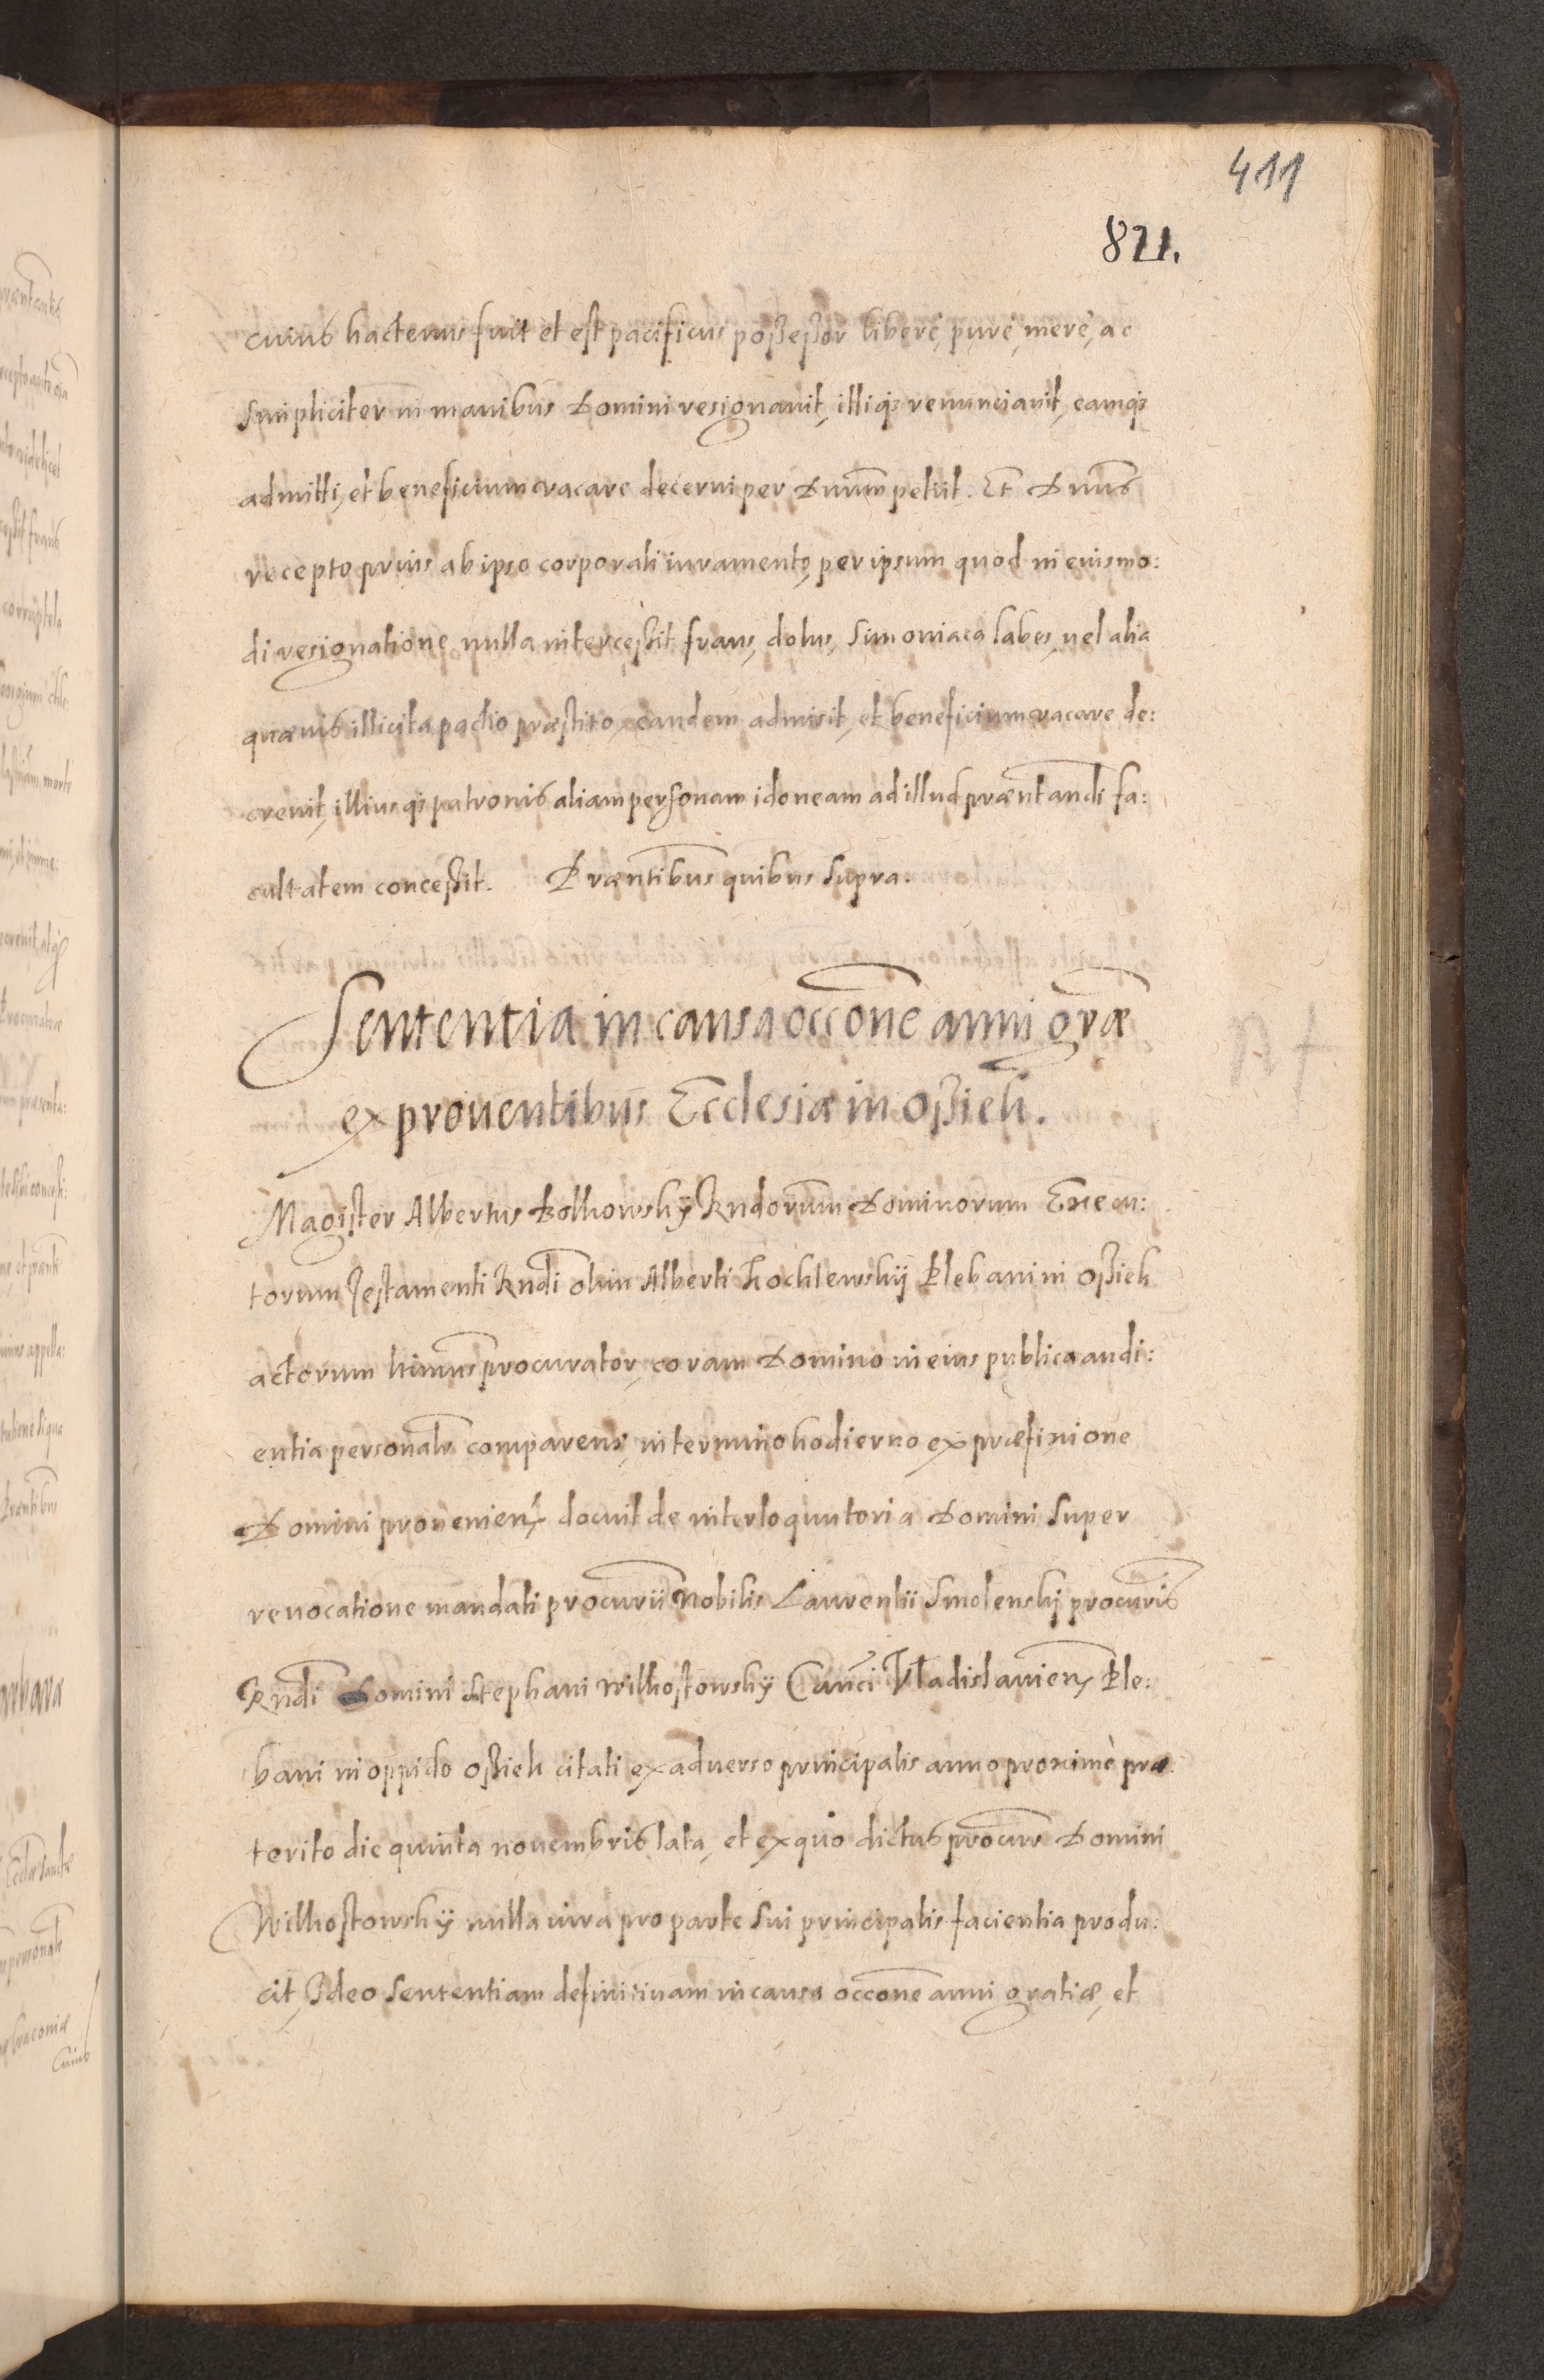 411
821.
cuius hactenus fuit et est pacificus poßeßor liberè, purè, merè, ac
simpliciter in manibus Domini resignauit, illiqȝ renunciauit, eamqȝ
admitti, et beneficium vacare decerni per Dnūm petiit. Et Dnūs
recepto prius ab ipso corporali iuramento, per ipsum quod in euismo:
di resignatione nulla interceßit fraus, dolus, simoniaca labes, uel alia
quæuis illicita pactio præstito, eandem admisit, et beneficium vacare de:
creuit, illiusqȝ patronis aliam personam idoneam ad illud præntandi fa:
cultatem conceßit. Præntibus quibus supra.
Sententia in causa occōne anni grāæ
ex prouentibus Ecclesiæ in Oßieh.
Magister Albertus Bolhowskÿ Rndorum Dominorum Execu:
torum Testamenti Rndi olim Alberti Kochlewskÿ Plebani in Oßiek
actorum ltimus procurator, coram Domino in eius publica audi:
entia personalr comparens, in termino hodierno ex præfinione
Domini prouenien̄ docuit de interloquutoria Domini super
reuocatione mandati procurii Nobilis Laurentii Smolenskÿ procuris
Rndi Domini Stephani Wilkostowskÿ Canci Vladislauien̄ Ple:
bani in oppido Oßiek citati ex aduerso principalis anno proximè præ
terito die quinta nouembris lata, et ex quo dictus procur Domini
Wilkostowskÿ nulla iura pro parte sui principalis facientia produ:
cit, Ideo sententiam definitiuam in causa occōne anni gratiæ, et